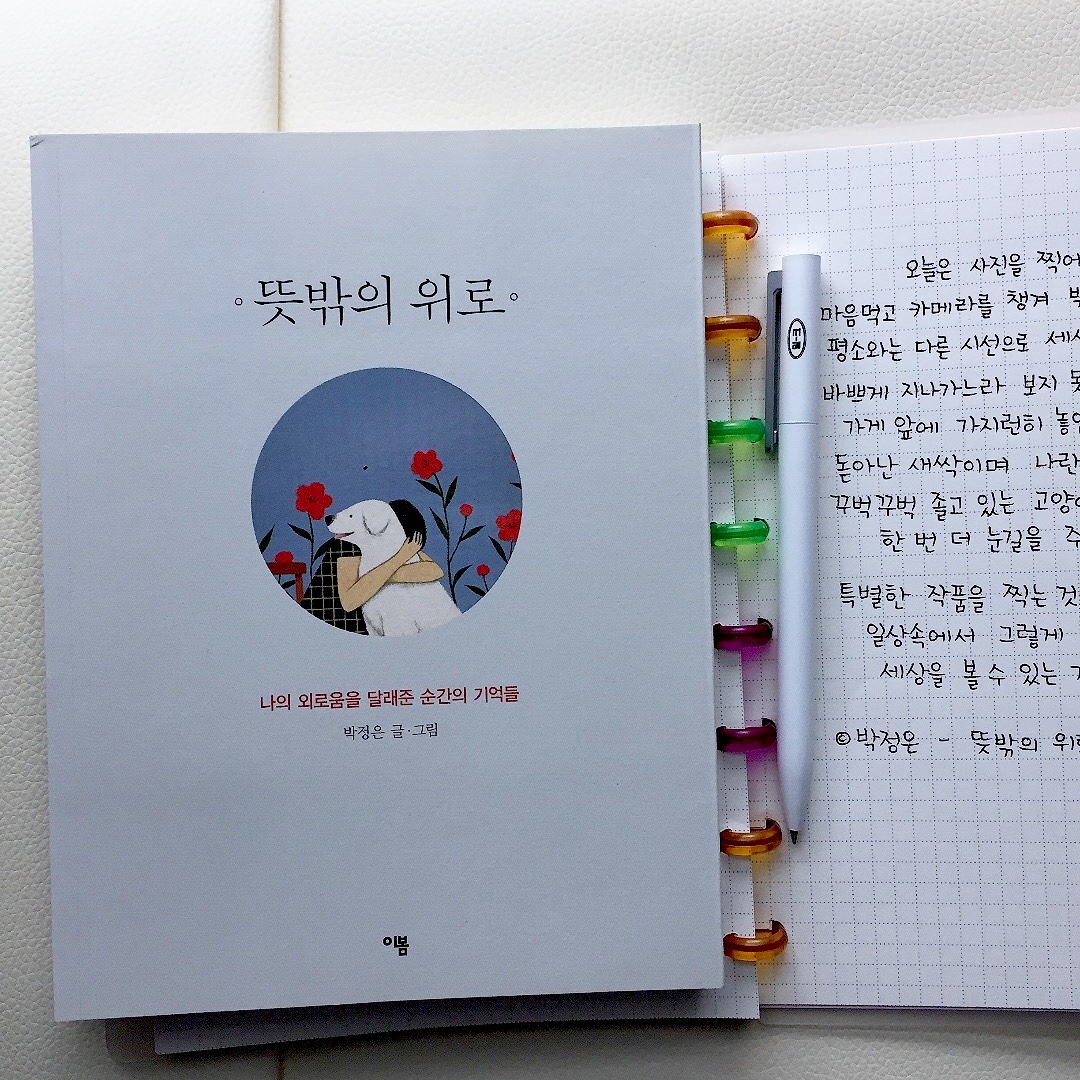 뜻밖의 위로
나의 외로움을 달래준 순간의 기억들
박정은 글·그림
이봄
오늘은 사진을 찍어
마음먹고 카메라를 챙겨
평소와는 다른 시선으로 세상
바쁘게 지나가느라 보지
가게 앞에 가지런히
돋아난 새싹이며 나란
꾸벅꾸벅 졸고 있는 고양이
한 번 더 눈길을 주
특별한 작품을 찍는 것
일상속에서 그렇게
세상을 볼 수 있는
©박정은 - 뜻밖의 위로